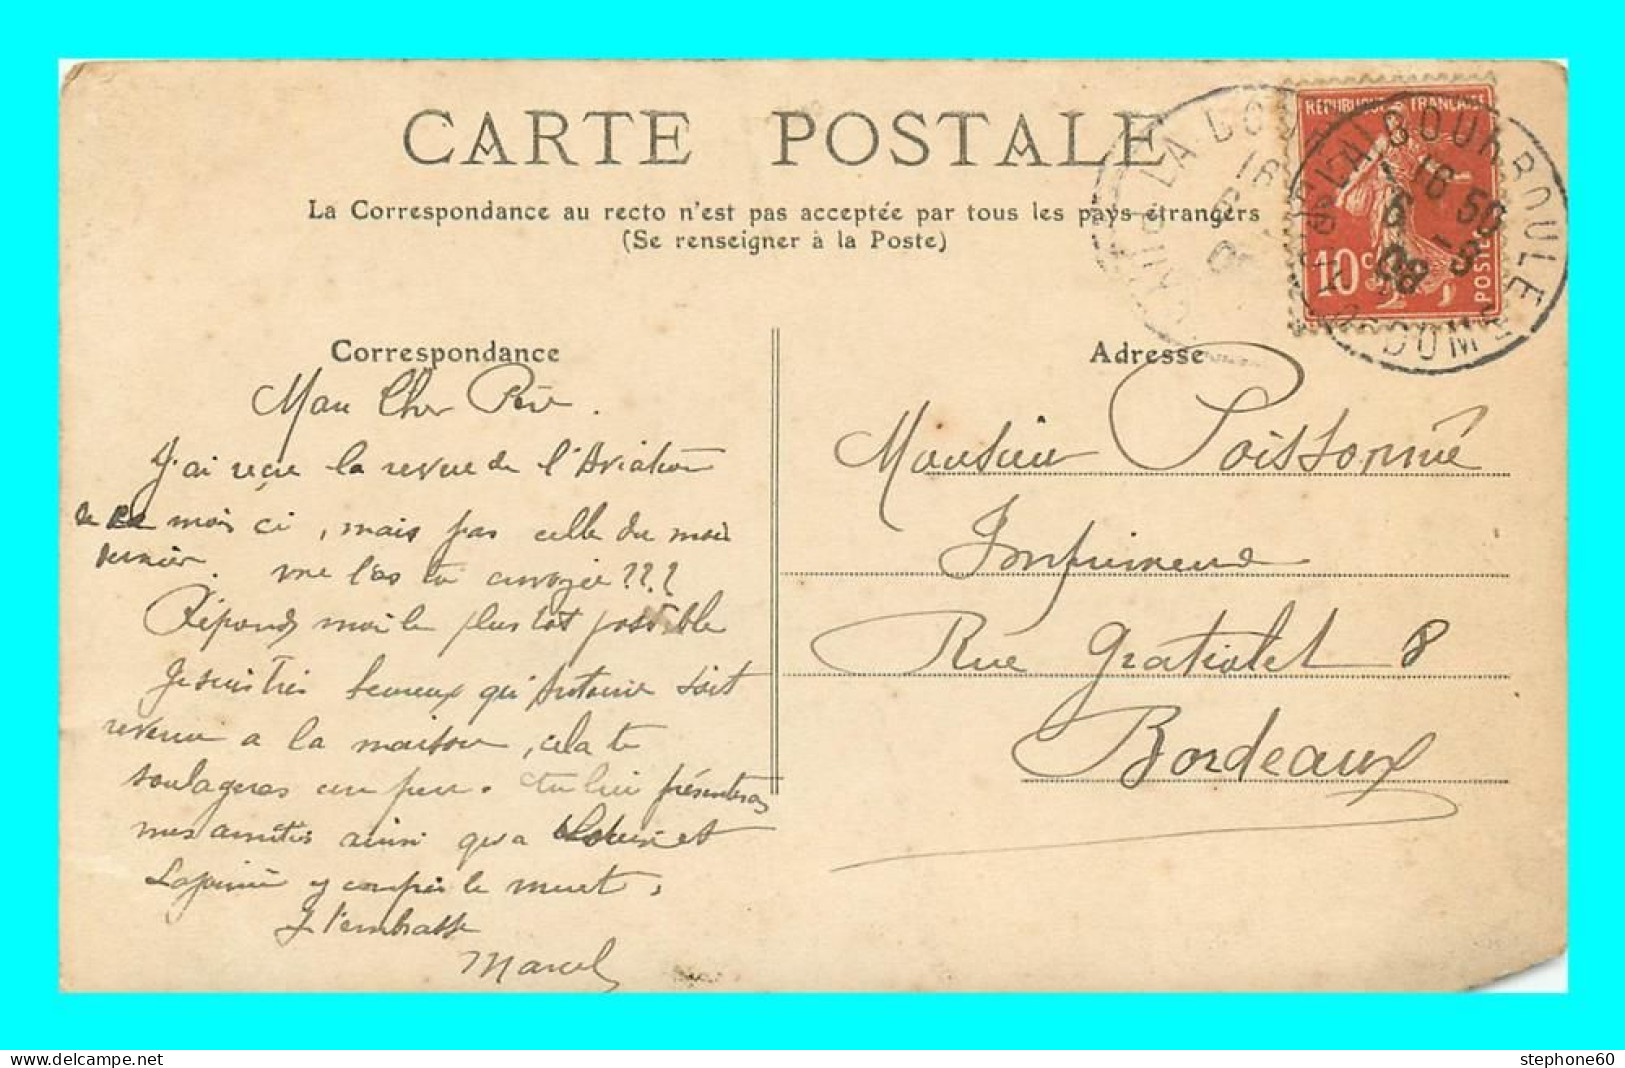 CARTE POSTALE
La Correspondance au recto n'est pas acceptée par tous les pays étrangers
(Se renseigner à la Poste)
RÉPUBLIQUE FRANÇAISE
10c POSTES
LA BOURBOULE
16 50
6 -8
08
DOME
Correspondance
Mon Cher Père.
J'ai reçue la revue de l'Aviation
de ce mois ci, mais pas celle du mois
dernier. me l'as tu envoyée???
Réponds moi le plus tôt possible
Je suis très heureux qu'Antoine soit
revenu a la maison, cela te
soulageras un peu. tu lui présenteras
mes amitiés ainsi qu'a Louis et
y compris le muet,
Je t'embrasse
Marcel
Adresse
Monsieur Poissonnié
Imprimeur
Rue Gratiolet 8
Bordeaux
www.delcampe.net
stephone60